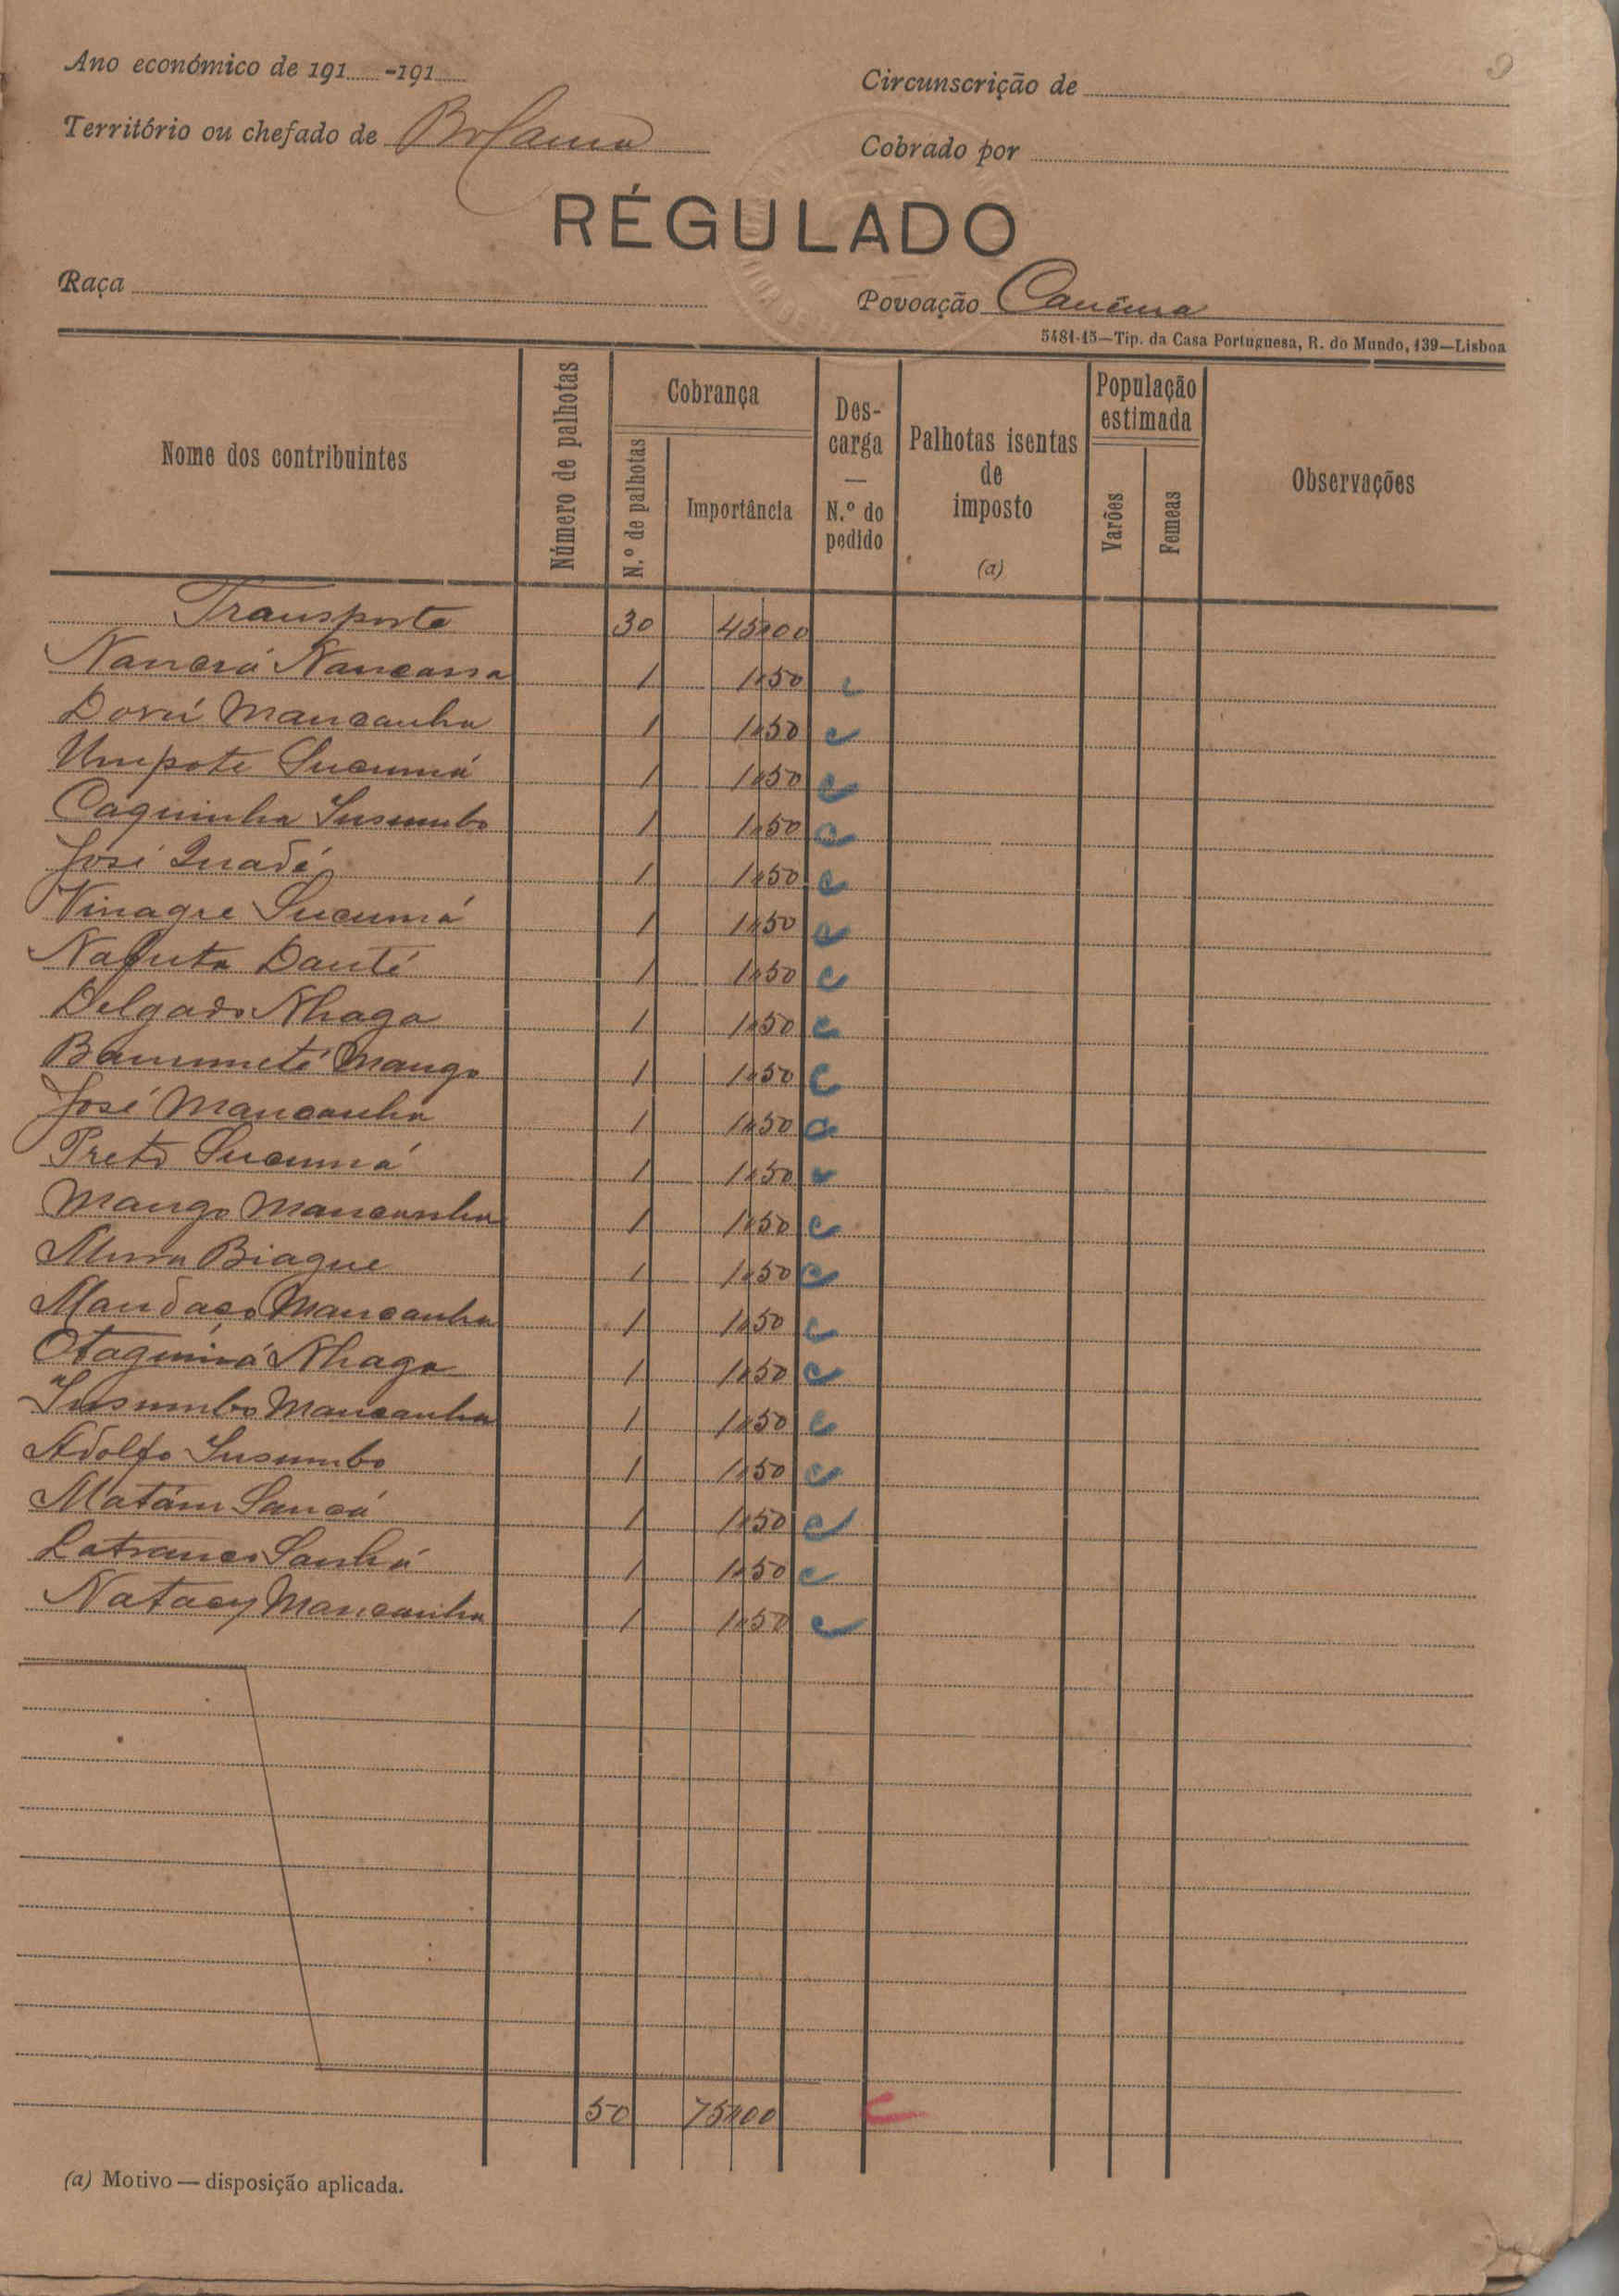 9
Ano económico de 191 -191
Circunscrição de
Território ou chefado de Bolama
Cobrado por
RÉGULADO
Raça
Povoação
5484-15—Tip. da Casa Portuguesa, R. do Mundo, 139—Lisboa
Nome dos contribuintes
Número de palhotas
Cobrança
N.º de palhotas
Importância
Descarga
—
N.º do pedido
Palhotas isentas de imposto
(a)
População estimada
Varões
Femeas
Observações
Transporte 30 45$00
1 1$50 c
Mancanha 1 1$50 c
Umpote Sucumá 1 1$50 c
Caquinha Susumbo 1 1$50 c
José Quadé 1 1$50 c
Vinagre Sucumá 1 1$50 c
Nafuta Dauté 1 1$50 c
Delgado Nhaga 1 1$50 c
Mango 1 1$50 c
José Mancanha 1 1$50 c
Preto Sucumá 1 1$50 c
Mango Mancanha 1 1$50 c
Biague 1 1$50 c
Mandaço Mancanha 1 1$50 c
Nhaga 1 1$50 c
Susumbo Mancanha 1 1$50 c
Adolfo Susumbo 1 1$50 c
Matám Sancá 1 1$50 c
Sanhá 1 1$50 c
Natacy Mancanha 1 1$50 c
50 75$00 c
(a) Motivo — disposição aplicada.